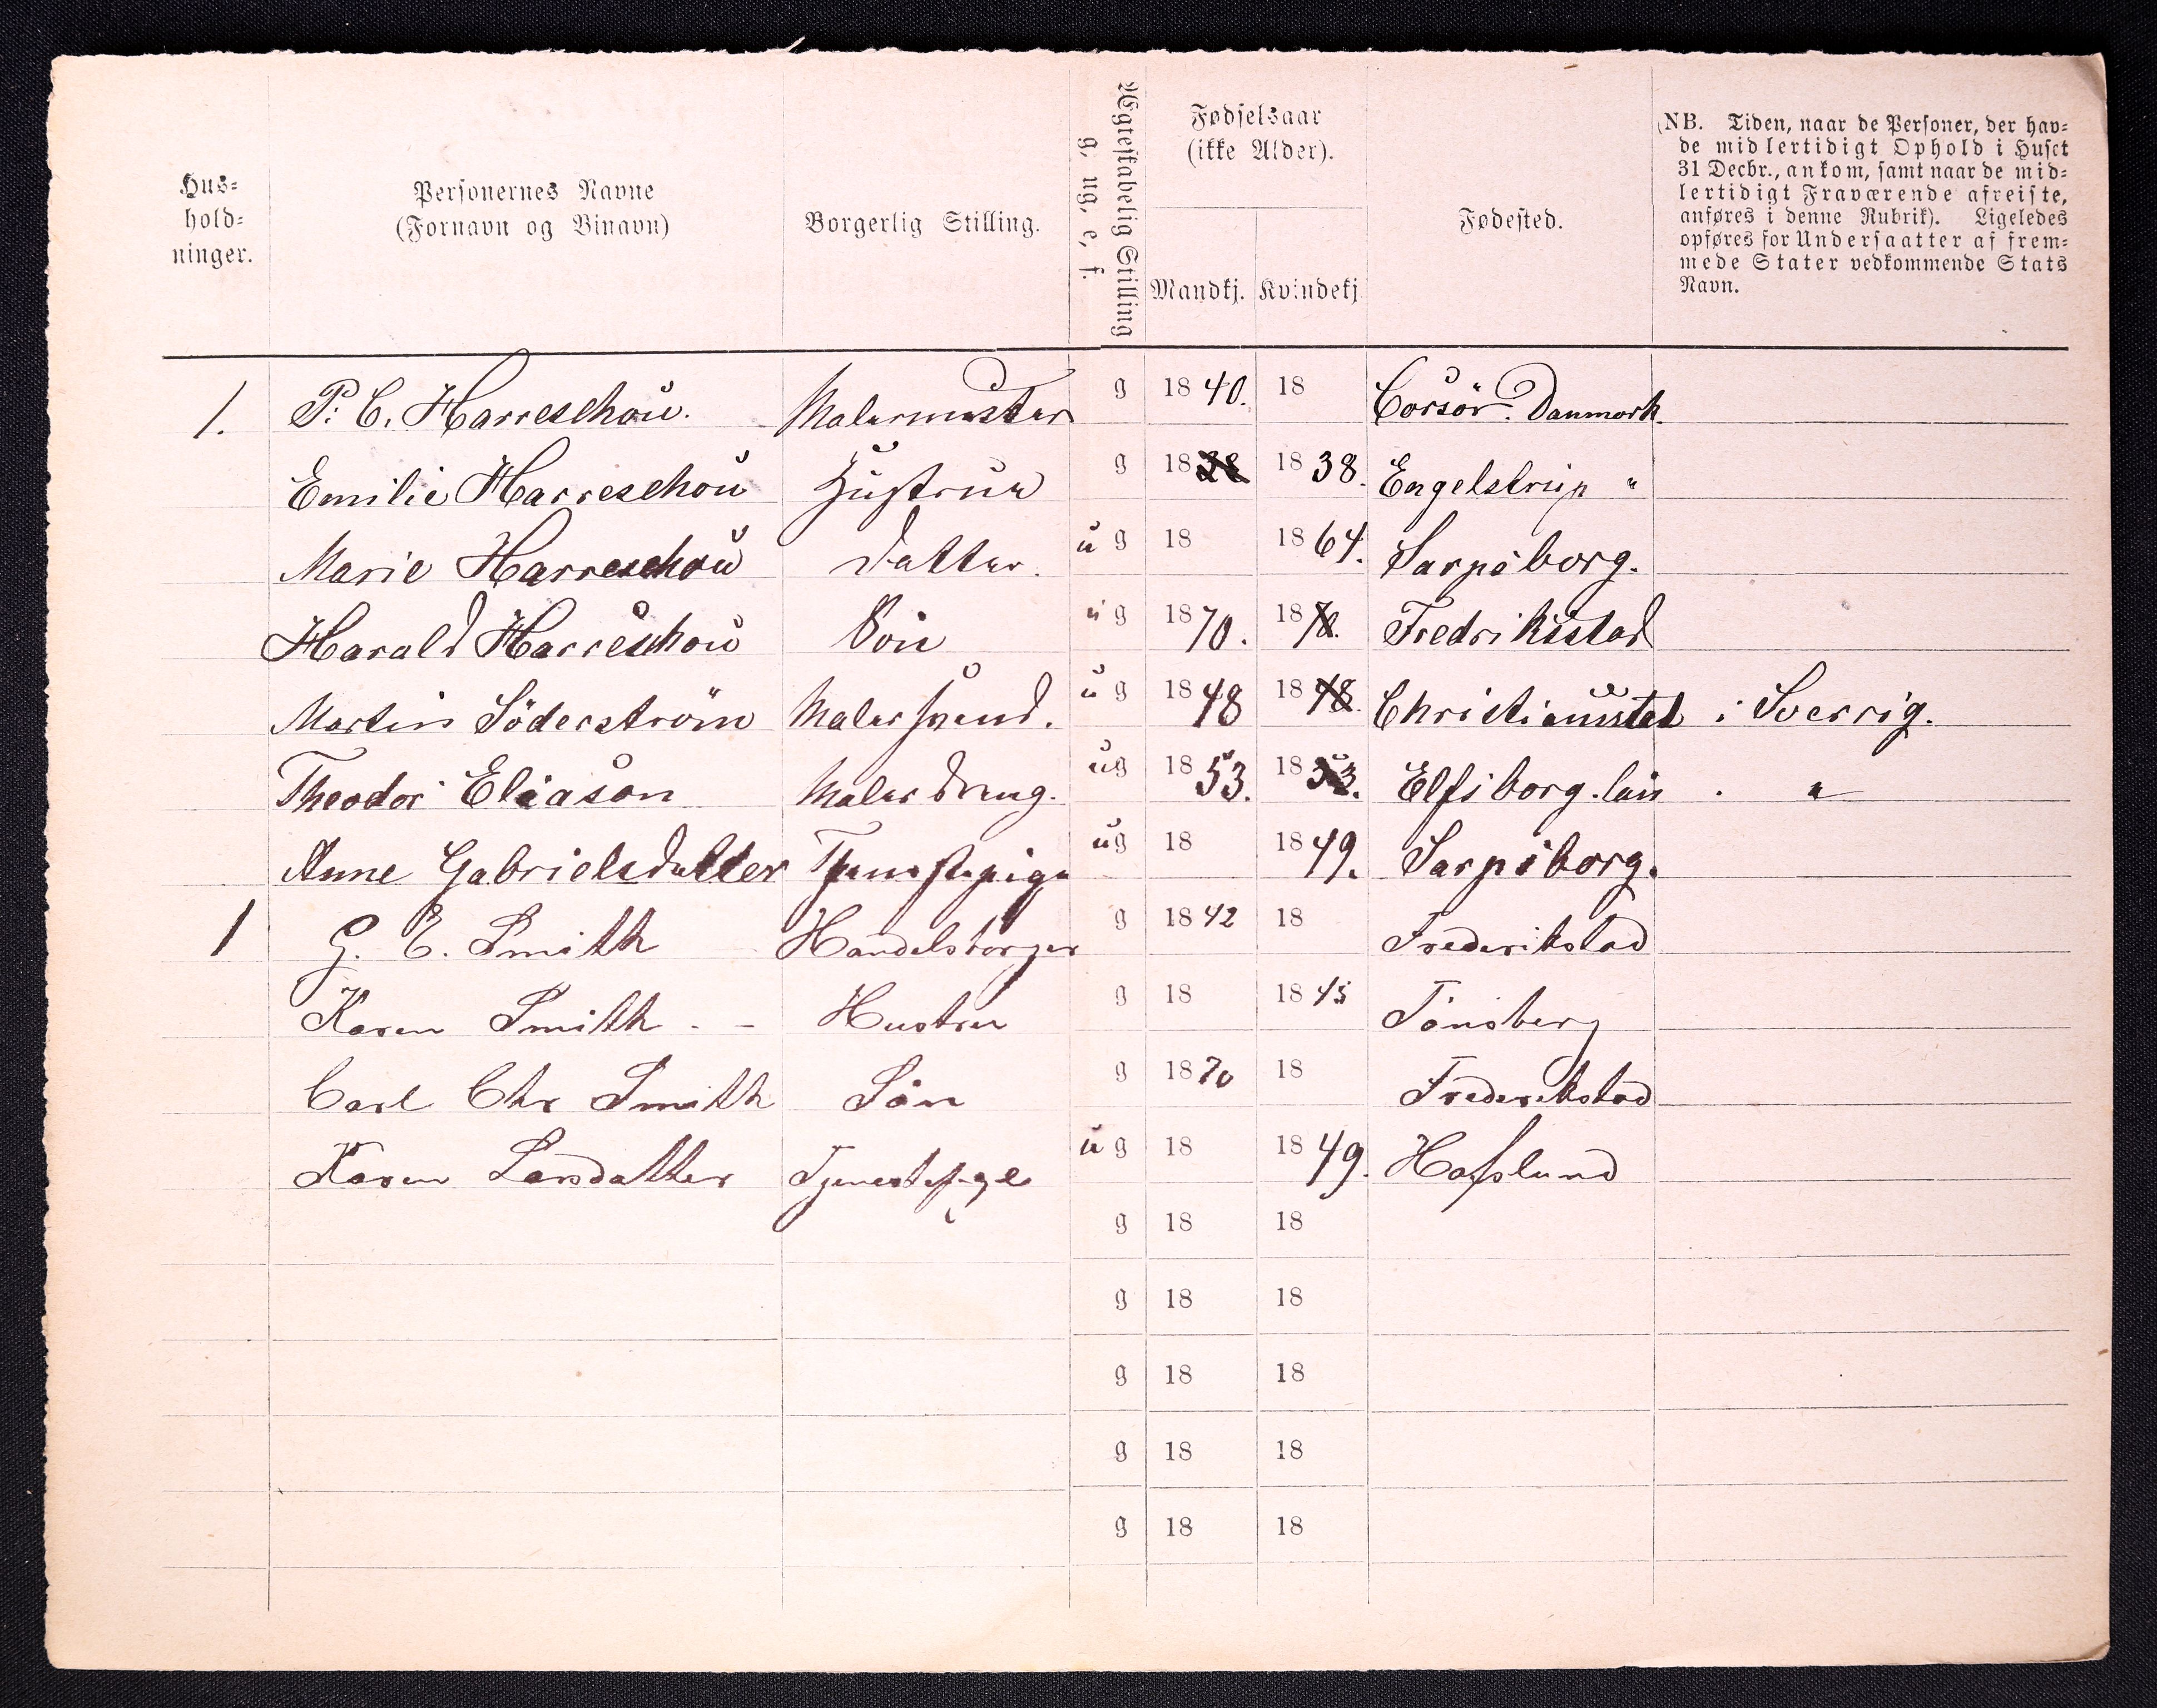 Hus-
hold-
ninger.
Personernes Navne
(Fornavn og Binavn)
Borgerlig Stilling.
Ægteskabelig Stilling
g, ug, e, f.
Fødselsaar
(ikke Alder).
Mandkj. Kvindekj
Fødested.
(NB. Tiden, naar de Personer, der hav-
de midlertidigt Ophold i Huset
31 Decbr., ankom, samt naar de mid-
lertidigt Fraværende afreiste,
anføres i denne Rubrik). Ligeledes
opføres for Undersaatter af frem-
mede Stater vedkommende Stats
Navn.
1. P. C. Harreschou. Malermester g 1840. 18 Corsör. Danmark.
Emilie Harreschou Hustrue g 18 1838. Engelstrup "
Marie Harreschou Datter. ug 18 1864. Sarpsborg.
Harald Harreschou Sön ug 1870. 1870. Fredriksstad
Martin Söderström Malersvend. ug 1848 1848. Christianstad i Sverrig.
Theodor Eliason Malerdreng. ug 1853. 1853. Elfsborg. län . "
Anne Gabrielsdatter Tjenestepige ug 18 1849. Sarpsborg.
1 G. E. Smith Handelsborger g 1842 18 Frederikstad
Karen Smith . - Hustru g 18 1845 Tönsberg
Carl Chr Smith Sön g 1870 18 Frederekstad
Karen Larsdatter Tjenestepige ug 18 1849. Hafslund
g 18 18
g 18 18
g 18 18
g 18 18
g 18 18